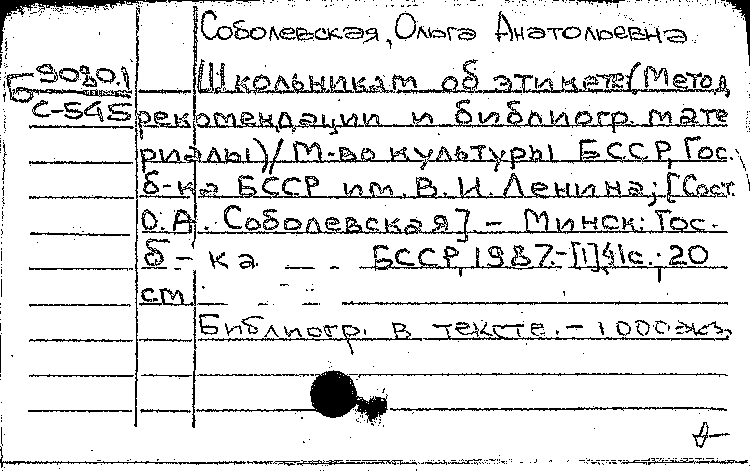 Соболевская, Ольга Анатольевна.
Б 9080.1
С-545
Школьникам об этикете (Метод
рекомендации и библиогр. мате
риалы) / М-во культуры БССР, Гос.
б-ка БССР им. В. И. Ленина; [Сост.
О. А. Соболевская] - Минск: Гос.
б-ка БССР, 1987.-[1], 41с.; 20
см
Библиогр. в тексте. - 1000экз.